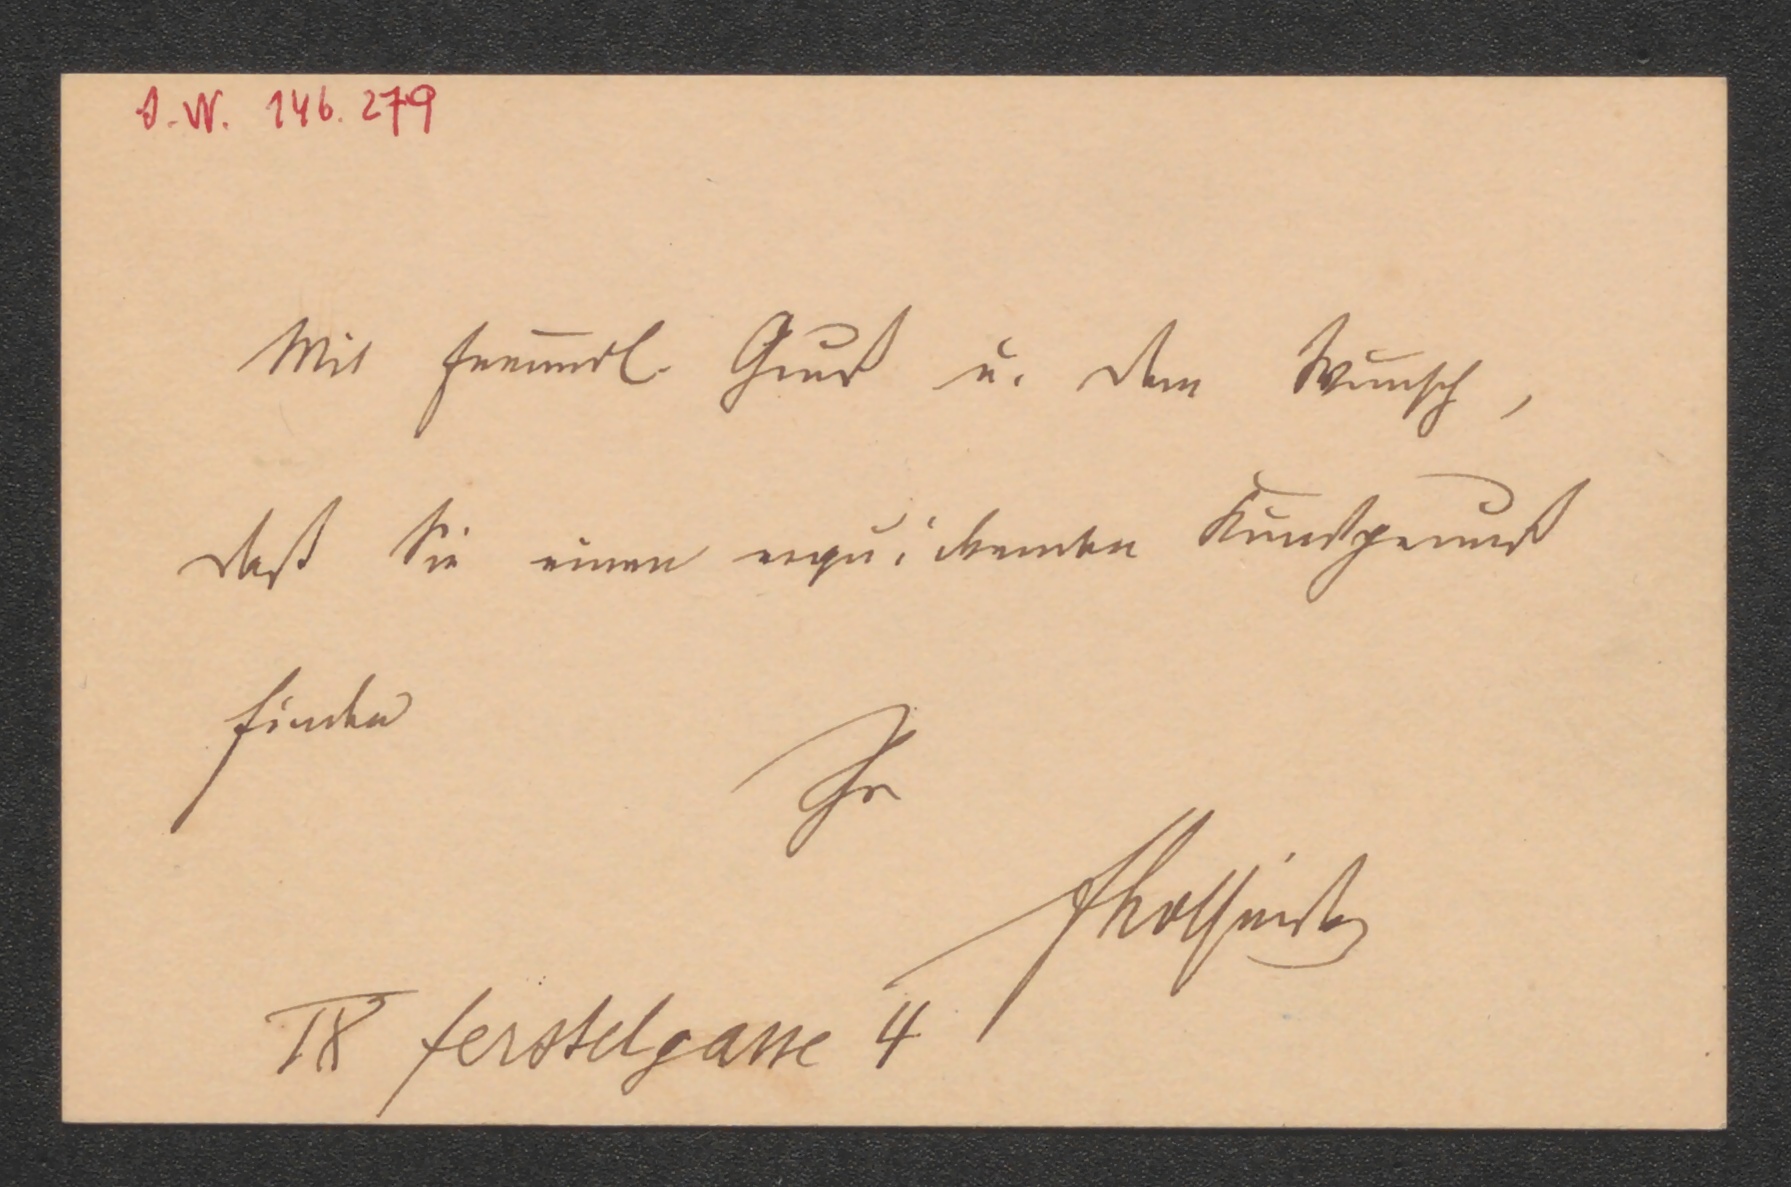 I.N. 146.279
Mit freundl. Gruß u. dem Wunsch,
daß Sie einen erquickenden Kunstgenuß
finden
Ihr
IX Ferstelgasse 4